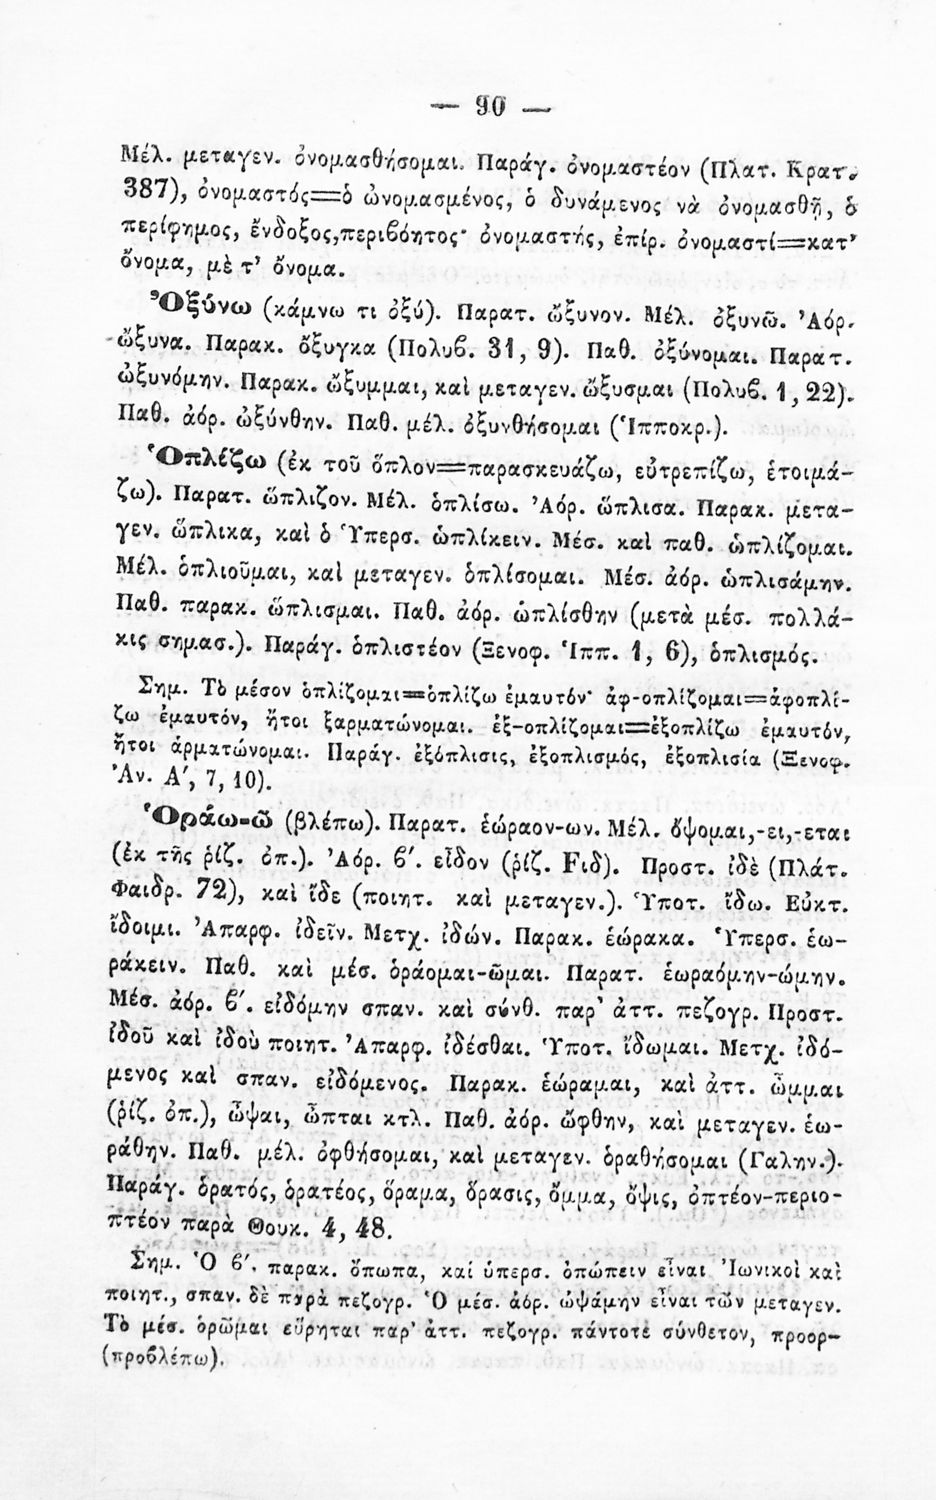 — 90 —
Μέλ. μεταγεν. ὀνομασθήσομαι. Παράγ. ὀνομαστέον (Πλατ. Κρατ.
387), ὀνομαστός=ὁ ὠνομασμένος, ὁ δυνάμενος νὰ ὀνομασθῇ, ὁ
περίφημος, ἔνδοξος,περιβόητος· ὀνομαστής, ἐπίρ. ὀνομαστί=κατ'
ὄνομα, μὲ τ' ὄνομα.
Ὀξύνω (κάμνω τι ὀξύ). Παρατ. ὤξυνον. Μέλ. ὀξυνῶ. Ἀόρ.
ὤξυνα. Παρακ. ὄξυγκα (Πολυβ. 31, 9). Παθ. ὀξύνομαι. Παρατ.
ὠξυνόμην. Παρακ. ὤξυμμαι, καὶ μεταγεν. ὤξυσμαι (Πολυβ. 1, 22).
Παθ. ἀόρ. ὠξύνθην. Παθ. μέλ. ὀξυνθήσομαι (Ἱπποκρ.).
Ὁπλίζω (ἐκ τοῦ ὅπλον=παρασκευάζω, εὐτρεπίζω, ἑτοιμά-
ζω). Παρατ. ὥπλιζον. Μέλ. ὁπλίσω. Ἀόρ. ὥπλισα. Παρακ. μετα-
γεν. ὥπλικα, καὶ ὁ Ὑπερσ. ὡπλίκειν. Μέσ. καὶ παθ. ὡπλίζομαι.
Μέλ. ὁπλιοῦμαι, καὶ μεταγεν. ὁπλίσομαι. Μέσ. ἀόρ. ὡπλισάμην.
Παθ. παρακ. ὥπλισμαι. Παθ. ἀόρ. ὡπλίσθην (μετὰ μέσ. πολλά-
κις σημασ.). Παράγ. ὁπλιστέον (Ξενοφ. Ἱππ. 1, 6), ὁπλισμός.
Σημ. Τὸ μέσον ὁπλίζομαι=ὁπλίζω ἐμαυτόν· ἀφ-οπλίζομαι=ἀφοπλί-
ζω ἐμαυτόν, ἤτοι ξαρματώνομαι. ἐξ-οπλίζομαι=ἐξοπλίζω ἐμαυτόν,
ἤτοι ἀρματώνομαι. Παράγ. ἐξόπλισις, ἐξοπλισμός, ἐξοπλισία (Ξενοφ.
Ἀν. Α', 7, 10).
Ὁράω-ῶ (βλέπω). Παρατ. ἑώραον-ων. Μέλ. ὄψομαι,-ει,-εται
(ἐκ τῆς ῥίζ. ὀπ.). Ἀόρ. β'. εἶδον (ῥίζ. Fιδ). Προστ. ἰδὲ (Πλάτ.
Φαιδρ. 72), καὶ ἴδε (ποιητ. καὶ μεταγεν.). Ὑποτ. ἴδω. Εὐκτ.
ἴδοιμι. Ἀπαρφ. ἰδεῖν. Μετχ. ἰδών. Παρακ. ἑώρακα. Ὑπερσ. ἑω-
ράκειν. Παθ. καὶ μέσ. ὁράομαι-ῶμαι. Παρατ. ἑωραόμην-ώμην.
Μέσ. ἀόρ. β'. εἰδόμην σπαν. καὶ σύνθ. παρ' ἀττ. πεζογρ. Προστ.
ἰδοῦ καὶ ἰδοὺ ποιητ. Ἀπαρφ. ἰδέσθαι. Ὑποτ. ἴδωμαι. Μετχ. ἰδό-
μενος καὶ σπαν. εἰδόμενος. Παρακ. ἑώραμαι, καὶ ἀττ. ὦμμαι
(ῥίζ. ὀπ.), ὦψαι, ὦπται κτλ. Παθ. ἀόρ. ὤφθην, καὶ μεταγεν. ἑω-
ράθην. Παθ. μέλ. ὀφθήσομαι, καὶ μεταγεν. ὁραθήσομαι (Γαλην.).
Παράγ. ὁρατός, ὁρατέος, ὅραμα, ὅρασις, ὄμμα, ὄψις, ὀπτέον-περιο-
πτέον παρὰ Θουκ. 4, 48.
Σημ. Ὁ β'. παρακ. ὄπωπα, καί ὑπερσ. ὀπώπειν εἶναι Ἰωνικοὶ καὶ
ποιητ., σπαν. δὲ παρὰ πεζογρ. Ὁ μέσ. ἀόρ. ὠψάμην εἶναι τῶν μεταγεν.
Τὸ μέσ. ὁρῶμαι εὕρηται παρ' ἀττ. πεζογρ. πάντοτε σύνθετον, προορ-
(προβλέπω).